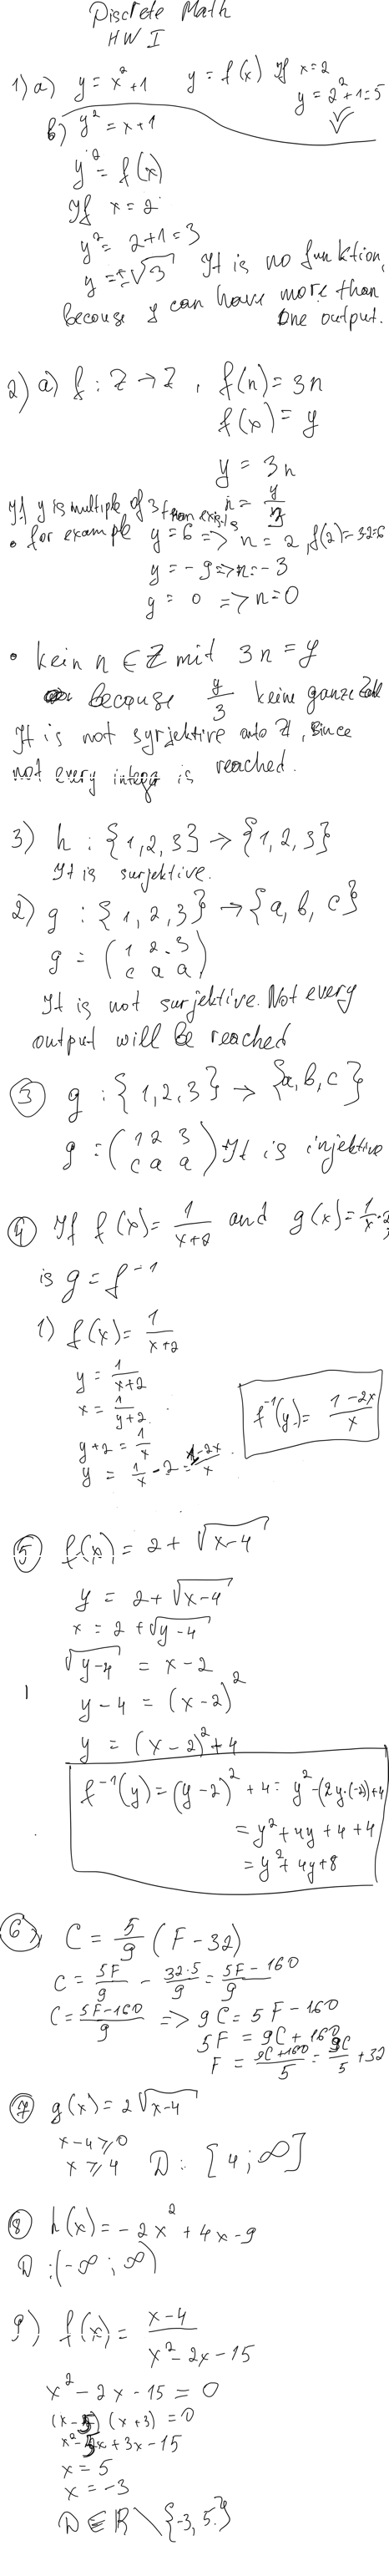 Discrete Math
HW I
1) a) y = x² + 1 y = f(x) If x = 2
y = 2² + 1 = 5
b) y² = x + 1
y² = f(x)
If x = 2
y² = 2 + 1 = 3
y = ±√3 It is no funktion,
becouse y can have more than
one output.
2) a) f : Z → Z, f(n) = 3n
f(x) = y
y = 3n
If y is multiple of 3 then exists n = y/3
• for example y = 6 => n = 2, f(2) = 3·2 = 6
y = -9 => n = -3
y = 0 => n = 0
• kein n ∈ Z mit 3n = y
because y/3 keine ganze Zahl
It is not syrjektive onto Z, since
not every integer is reached.
3) h : {1, 2, 3} → {1, 2, 3}
It is surjektive.
2) g : {1, 2, 3} → {a, b, c}
g = (1 2 3
c a a)
It is not surjektive. Not every
output will be reached
③ g : {1, 2, 3} → {a, b, c}
g = (1 2 3
c a a) It is injektive
④ If f(x) = 1/(x+2) and g(x) = 1/x - 2,
is g = f⁻¹
1) f(x) = 1/(x+2)
y = 1/(x+2)
x = 1/(y+2)
y + 2 = 1/x
y = 1/x - 2 = (1-2x)/x
f⁻¹(y) = (1-2x)/x
⑤ f(x) = 2 + √(x-4)
y = 2 + √(x-4)
x = 2 + √(y-4)
√(y-4) = x - 2
y - 4 = (x-2)²
y = (x-2)² + 4
f⁻¹(y) = (y-2)² + 4 = y² - (2y·(-2) + 4
= y² + 4y + 4 + 4
= y² + 4y + 8
⑥ C = 5/9 (F - 32)
C = 5F/9 - 32·5/9 = (5F - 160)/9
C = (5F-160)/9 => 9C = 5F - 160
5F = 9C + 160
F = (9C+160)/5 = 9C/5 + 32
⑦ g(x) = 2√(x-4)
x - 4 ⩾ 0
x ⩾ 4 D : [4 ; ∞]
⑧ h(x) = -2x² + 4x - 9
D : (-∞ ; ∞)
9) f(x) = (x-4)/(x² - 2x - 15)
x² - 2x - 15 = 0
(x-5) (x+3) = 0
x² - 5x + 3x - 15
x = 5
x = -3
D ∈ R \ {-3, 5}